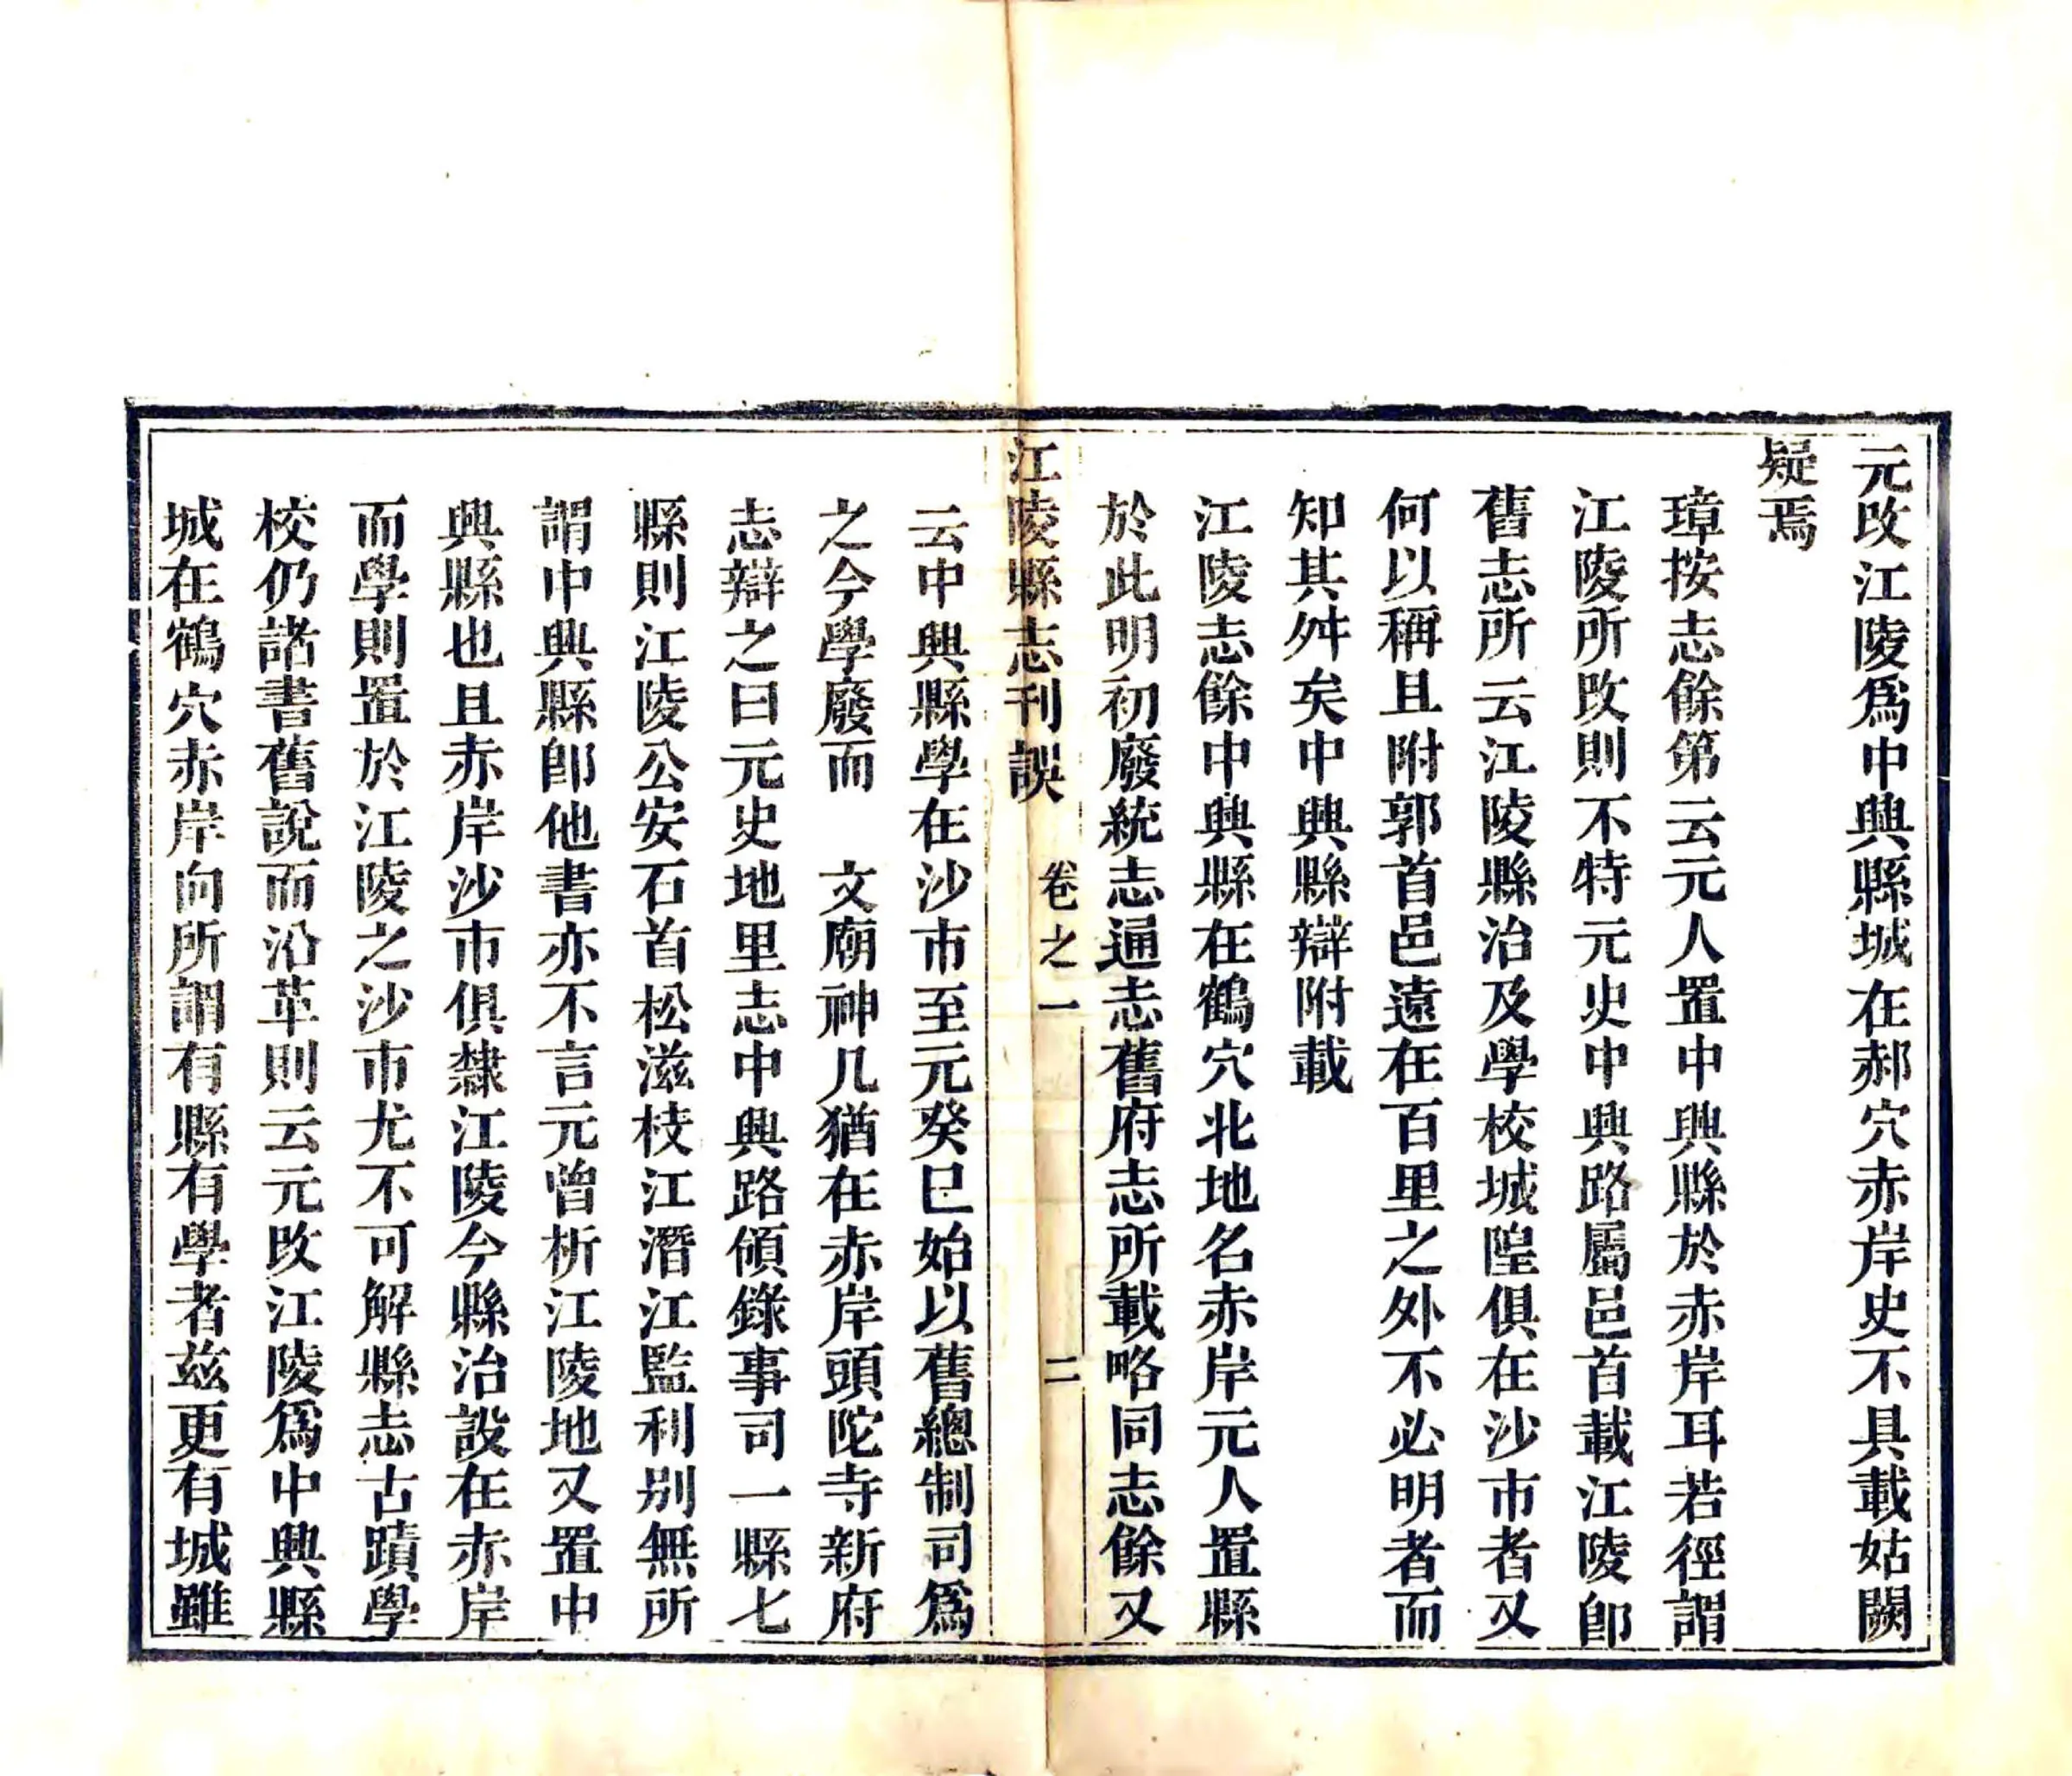 元改江陵爲中興縣城在郝穴赤岸史不具載姑闕
疑焉
璋按志餘第云元人置中興縣於赤岸耳若徑謂
江陵所改則不特元史中興路屬邑首載江陵卽
舊志所云江陵縣治及學校城隍俱在沙市者又
何以稱且附郭首邑遠在百里之外不必明者而
知其舛矣中興縣辯附載
江陵志餘中興縣在鶴穴北地名赤岸元人置縣
於此明初廢統志通志舊府志所載略同志餘又
江陵縣志刊誤 卷之一 二
云中興縣學在沙市至元癸巳始以舊總制司爲
之今學廢而 文廟神几猶在赤岸頭陀寺新府
志辯之曰元史地里志中興路領錄事司一縣七
縣則江陵公安石首松滋枝江潛江監利别無所
謂中興縣卽他書亦不言元曾析江陵地又置中
興縣也且赤岸沙市俱隸江陵今縣治設在赤岸
而學則置於江陵之沙市尤不可解縣志古蹟學
校仍諸書舊說而沿革則云元改江陵爲中興縣
城在鶴穴赤岸向所謂有縣有學者兹更有城雖